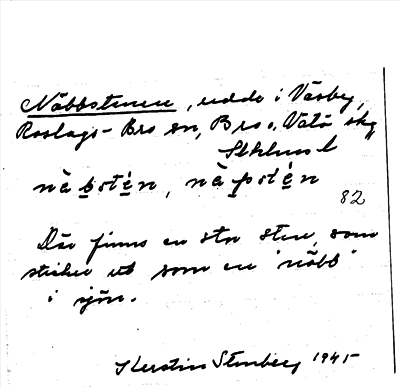 Näbbstenen, udde i Väsby,
Roslags-Bro sn, Bro o. Vätö skg
Sthlms l
nä̀bsté̀n, nä̀psté̀n
82
Där finns en stor sten, som
sticker ut som en "näbb"
i sjön.
Kerstin Stenberg 1945